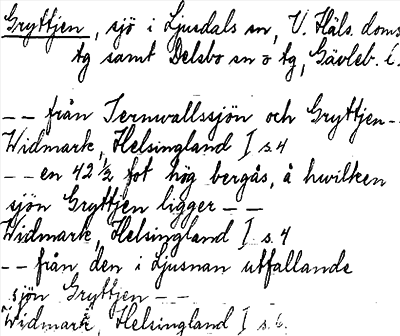 Gryttjen, sjö i Ljusdals sn, V. Häls. doms
tg samt Delsbo sn o tg, Gävleb. l.
-- från Ternwallssjön och Gryttjen--
Widmark, Helsingland I s. 4
-- en 42 ½ fot hög bergås, å hwilken
sjön Gryttjen ligger --
Widmark, Helsingland I s. 4
-- från den i Ljusnan utfallande
sjön Gryttjen --
Widmark, Helsingland I s. 6.